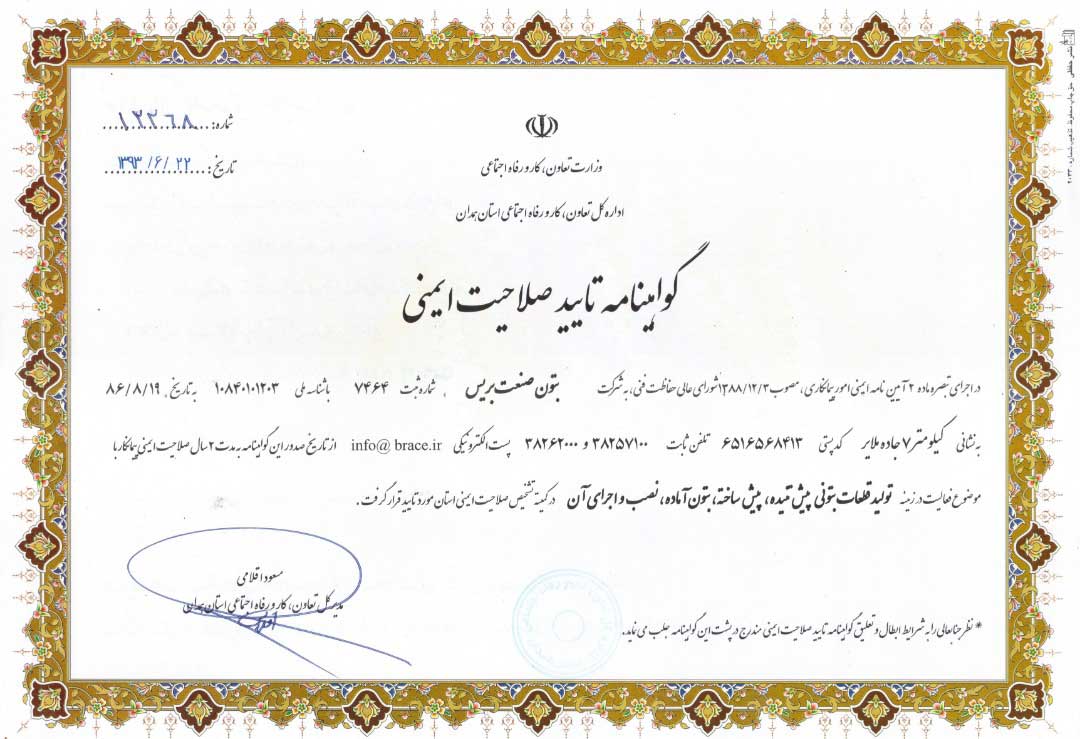 شماره: ۱۲۲۶۸
تاریخ: ۱۳۹۳/۶/۲۲
وزارت تعاون، کار و رفاه اجتماعی
اداره کل تعاون، کار و رفاه اجتماعی استان همدان
گواهینامه تایید صلاحیت ایمنی
در اجرای تبصره ماده ۲ آیین نامه ایمنی امور پیمانکاری، مصوب ۱۳۸۸/۱۲/۳ شورای عالی حفاظت فنی، به شرکت بتون صنعت بریس، شماره ثبت ۷۴۶۴ با شناسه ملی ۱۰۸۴۰۱۰۱۲۰۳ به تاریخ ۸۶/۸/۱۹
به نشانی کیلومتر ۷ جاده ملایر کد پستی ۶۵۱۶۵۶۸۴۱۳ تلفن ثابت ۳۸۲۵۷۱۰۰ و ۳۸۲۶۲۰۰۰ پست الکترونیکی info@ brace.ir از تاریخ صدور این گواهینامه به مدت ۲ سال صلاحیت ایمنی پیمانکار با
موضوع فعالیت در زمینه تولید قطعات بتونی پیش تنیده، پیش ساخته، بتون آماده، نصب و اجرای آن در کمیته تشخیص صلاحیت ایمنی استان مورد تایید قرار گرفت.
مسعود اقلامی
مدیر کل تعاون، کار و رفاه اجتماعی استان همدان
* نظر جنابعالی را به شرایط ابطال و تعلیق گواهینامه تایید صلاحیت ایمنی مندرج در پشت این گواهینامه جلب می نماید.